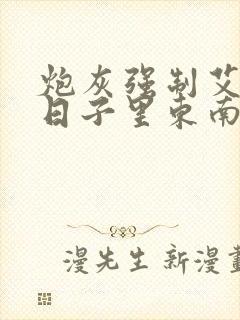 炮灰强制艾
日子里东南
漫先生 新漫畫